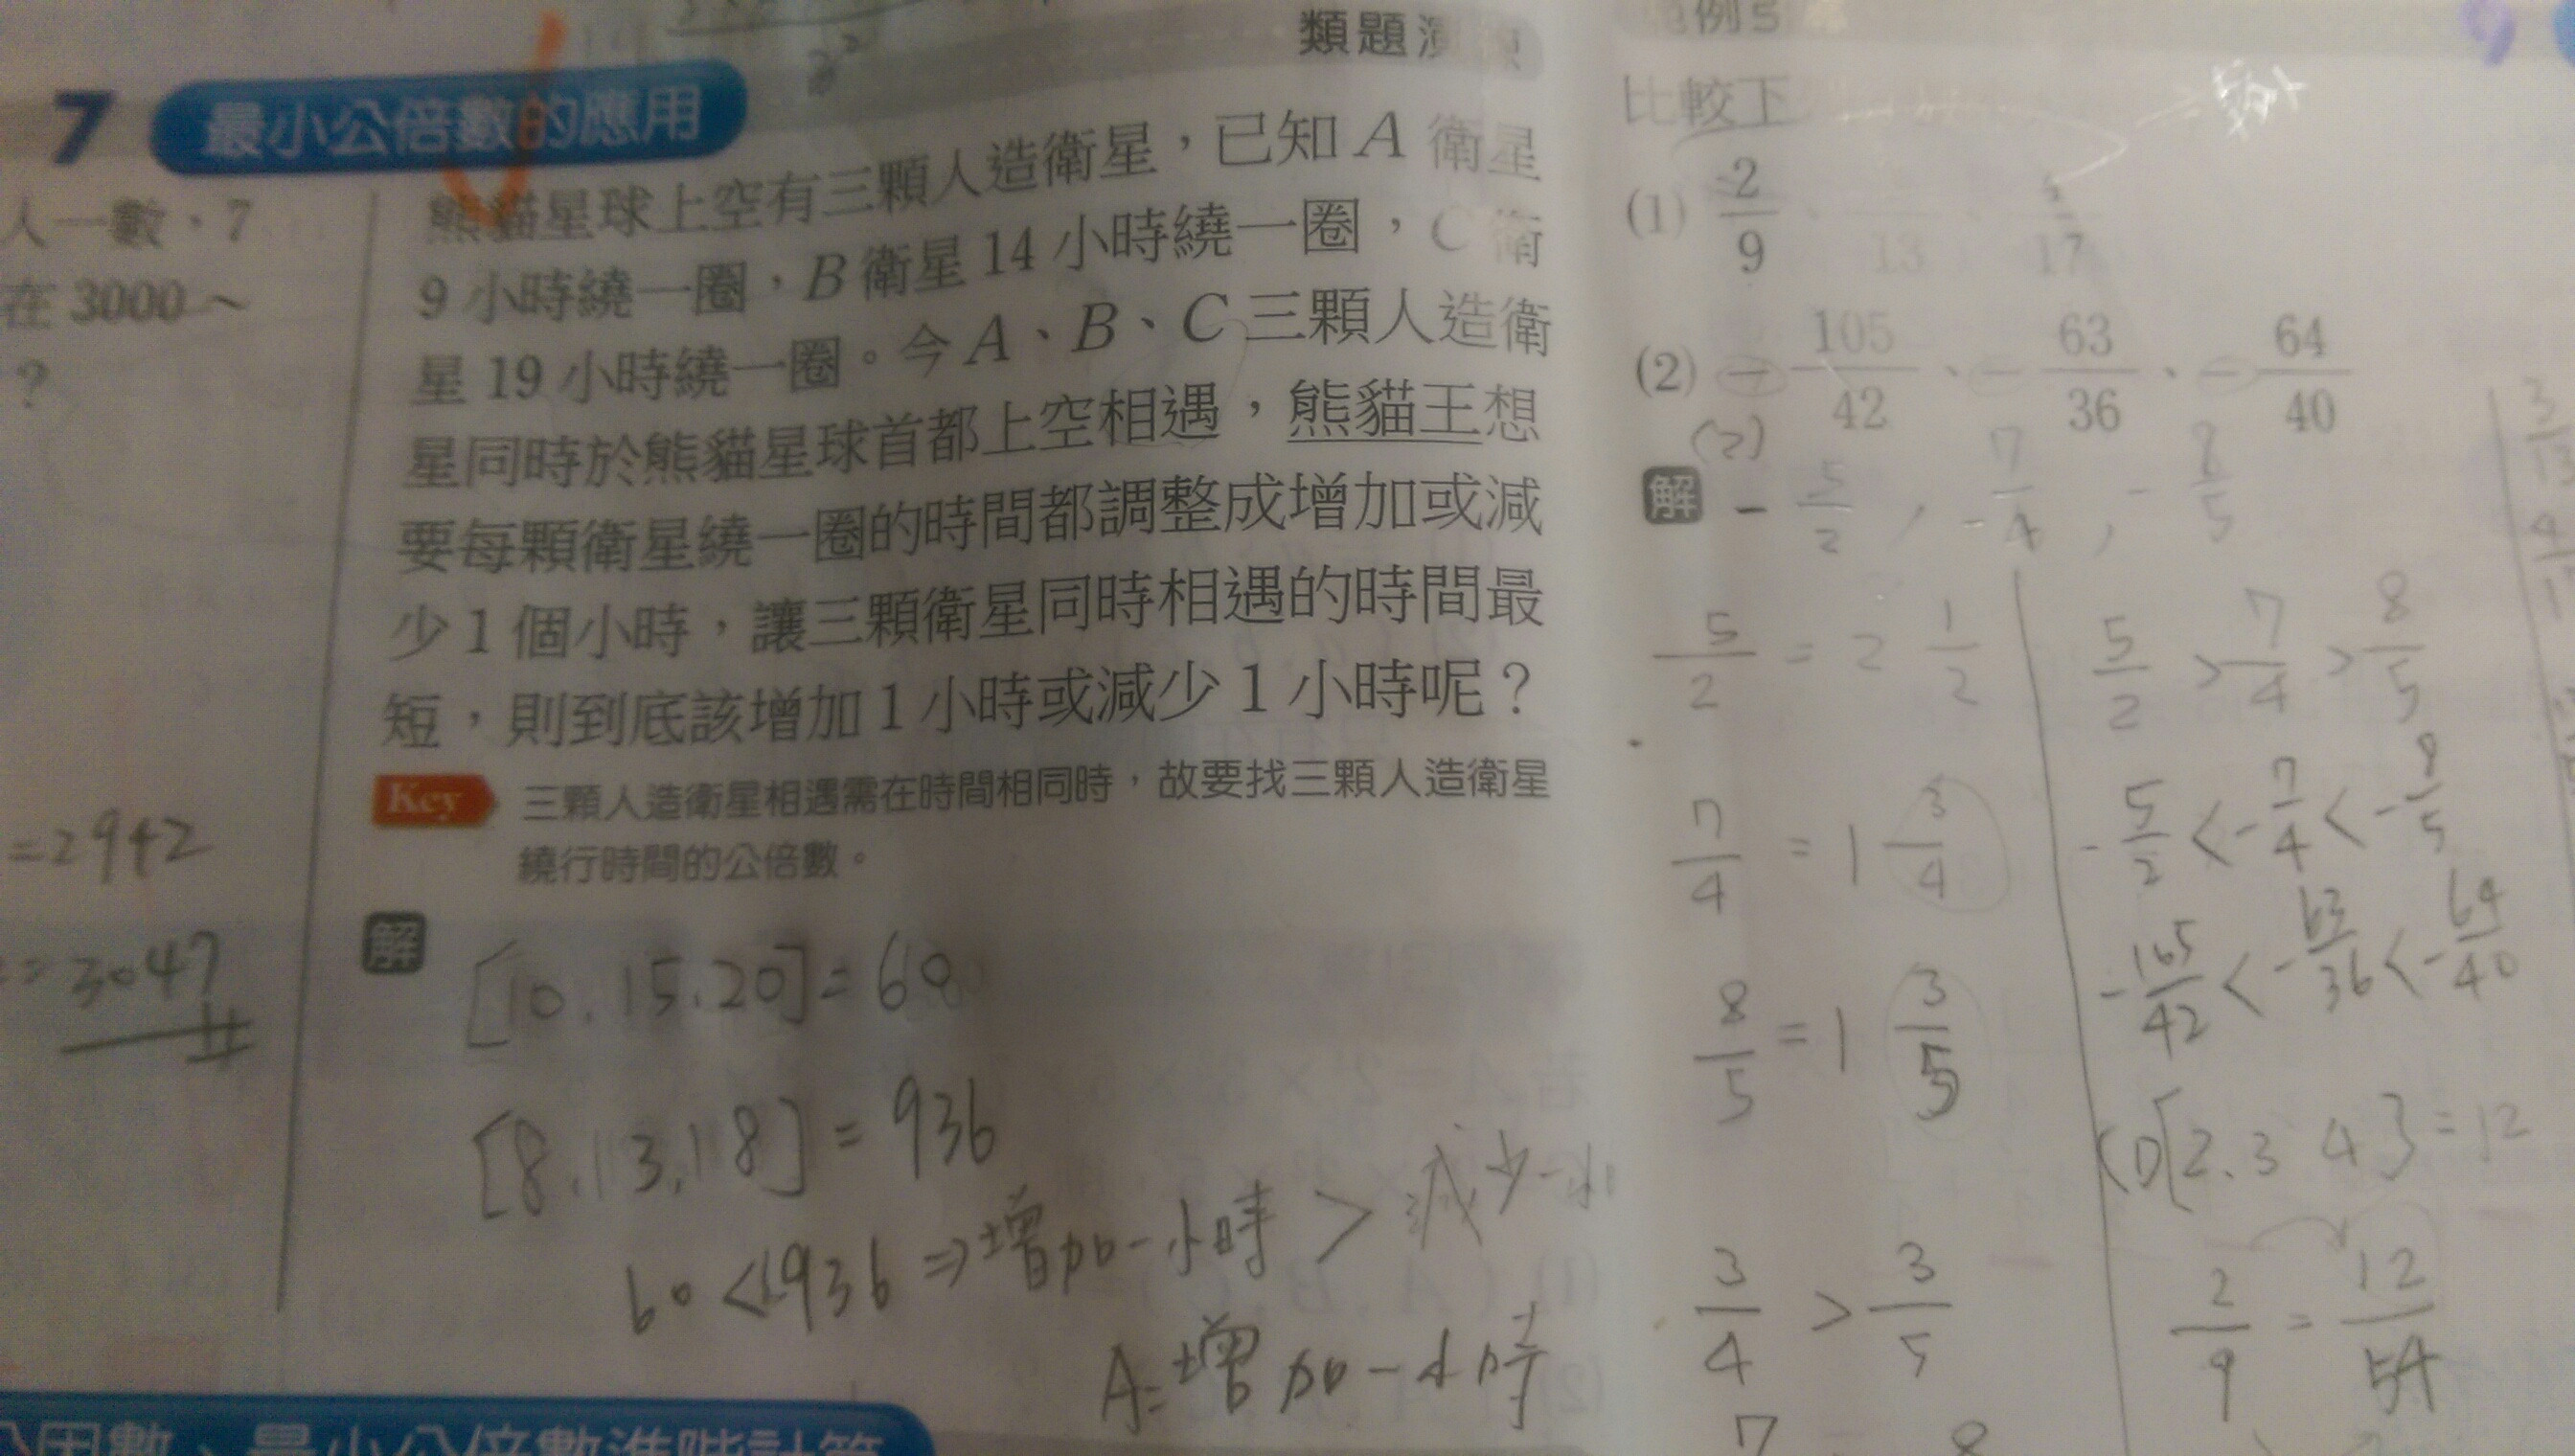 類題演
7 最小公倍數的應用
人一數,7
在 3000~
?
=2942
=3047
熊貓星球上空有三顆人造衛星,已知 A 衛星
9 小時繞一圈,B 衛星 14 小時繞一圈,C 衛
星 19 小時繞一圈。今 A、B、C 三顆人造衛
星同時於熊貓星球首都上空相遇,熊貓王想
要每顆衛星繞一圈的時間都調整成增加或減
少 1 個小時,讓三顆衛星同時相遇的時間最
短,則到底該增加 1 小時或減少 1 小時呢?
Key 三顆人造衛星相遇需在時間相同時,故要找三顆人造衛星
繞行時間的公倍數。
解 [10.15.20]=60
[8.13.18]=936
60<936⇒增加一小時>減少一小
A=增加一小時
最小公倍數進階計算
範例5
比較下
(1) 2/9、 13、 17
(2) -105/42、-63/36、-64/40
(2)
解 -5/2,-7/4,-8/5
5/2=2 1/2
7/4=1 3/4
8/5=1 3/5
3/4>3/5
5/2>7/4>8/5
-5/2<-7/4<-8/5
-105/42<-63/36<-64/40
(1)[2.3 4]=12
2/9=12/54